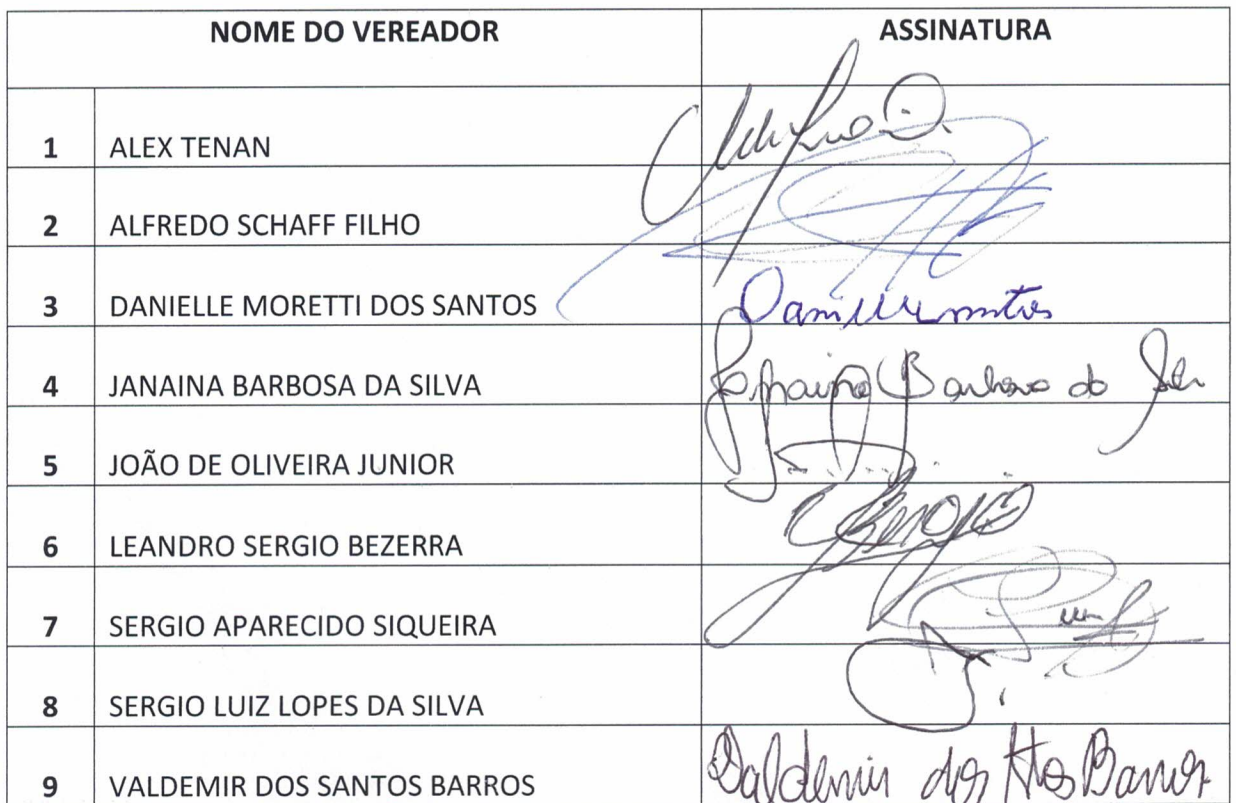 NOME DO VEREADOR ASSINATURA
1 ALEX TENAN
2 ALFREDO SCHAFF FILHO
3 DANIELLE MORETTI DOS SANTOS
4 JANAINA BARBOSA DA SILVA Janaina Barbosa da
5 JOÃO DE OLIVEIRA JUNIOR
6 LEANDRO SERGIO BEZERRA Sergio
7 SERGIO APARECIDO SIQUEIRA
8 SERGIO LUIZ LOPES DA SILVA
9 VALDEMIR DOS SANTOS BARROS Valdemir dos Stos Barros